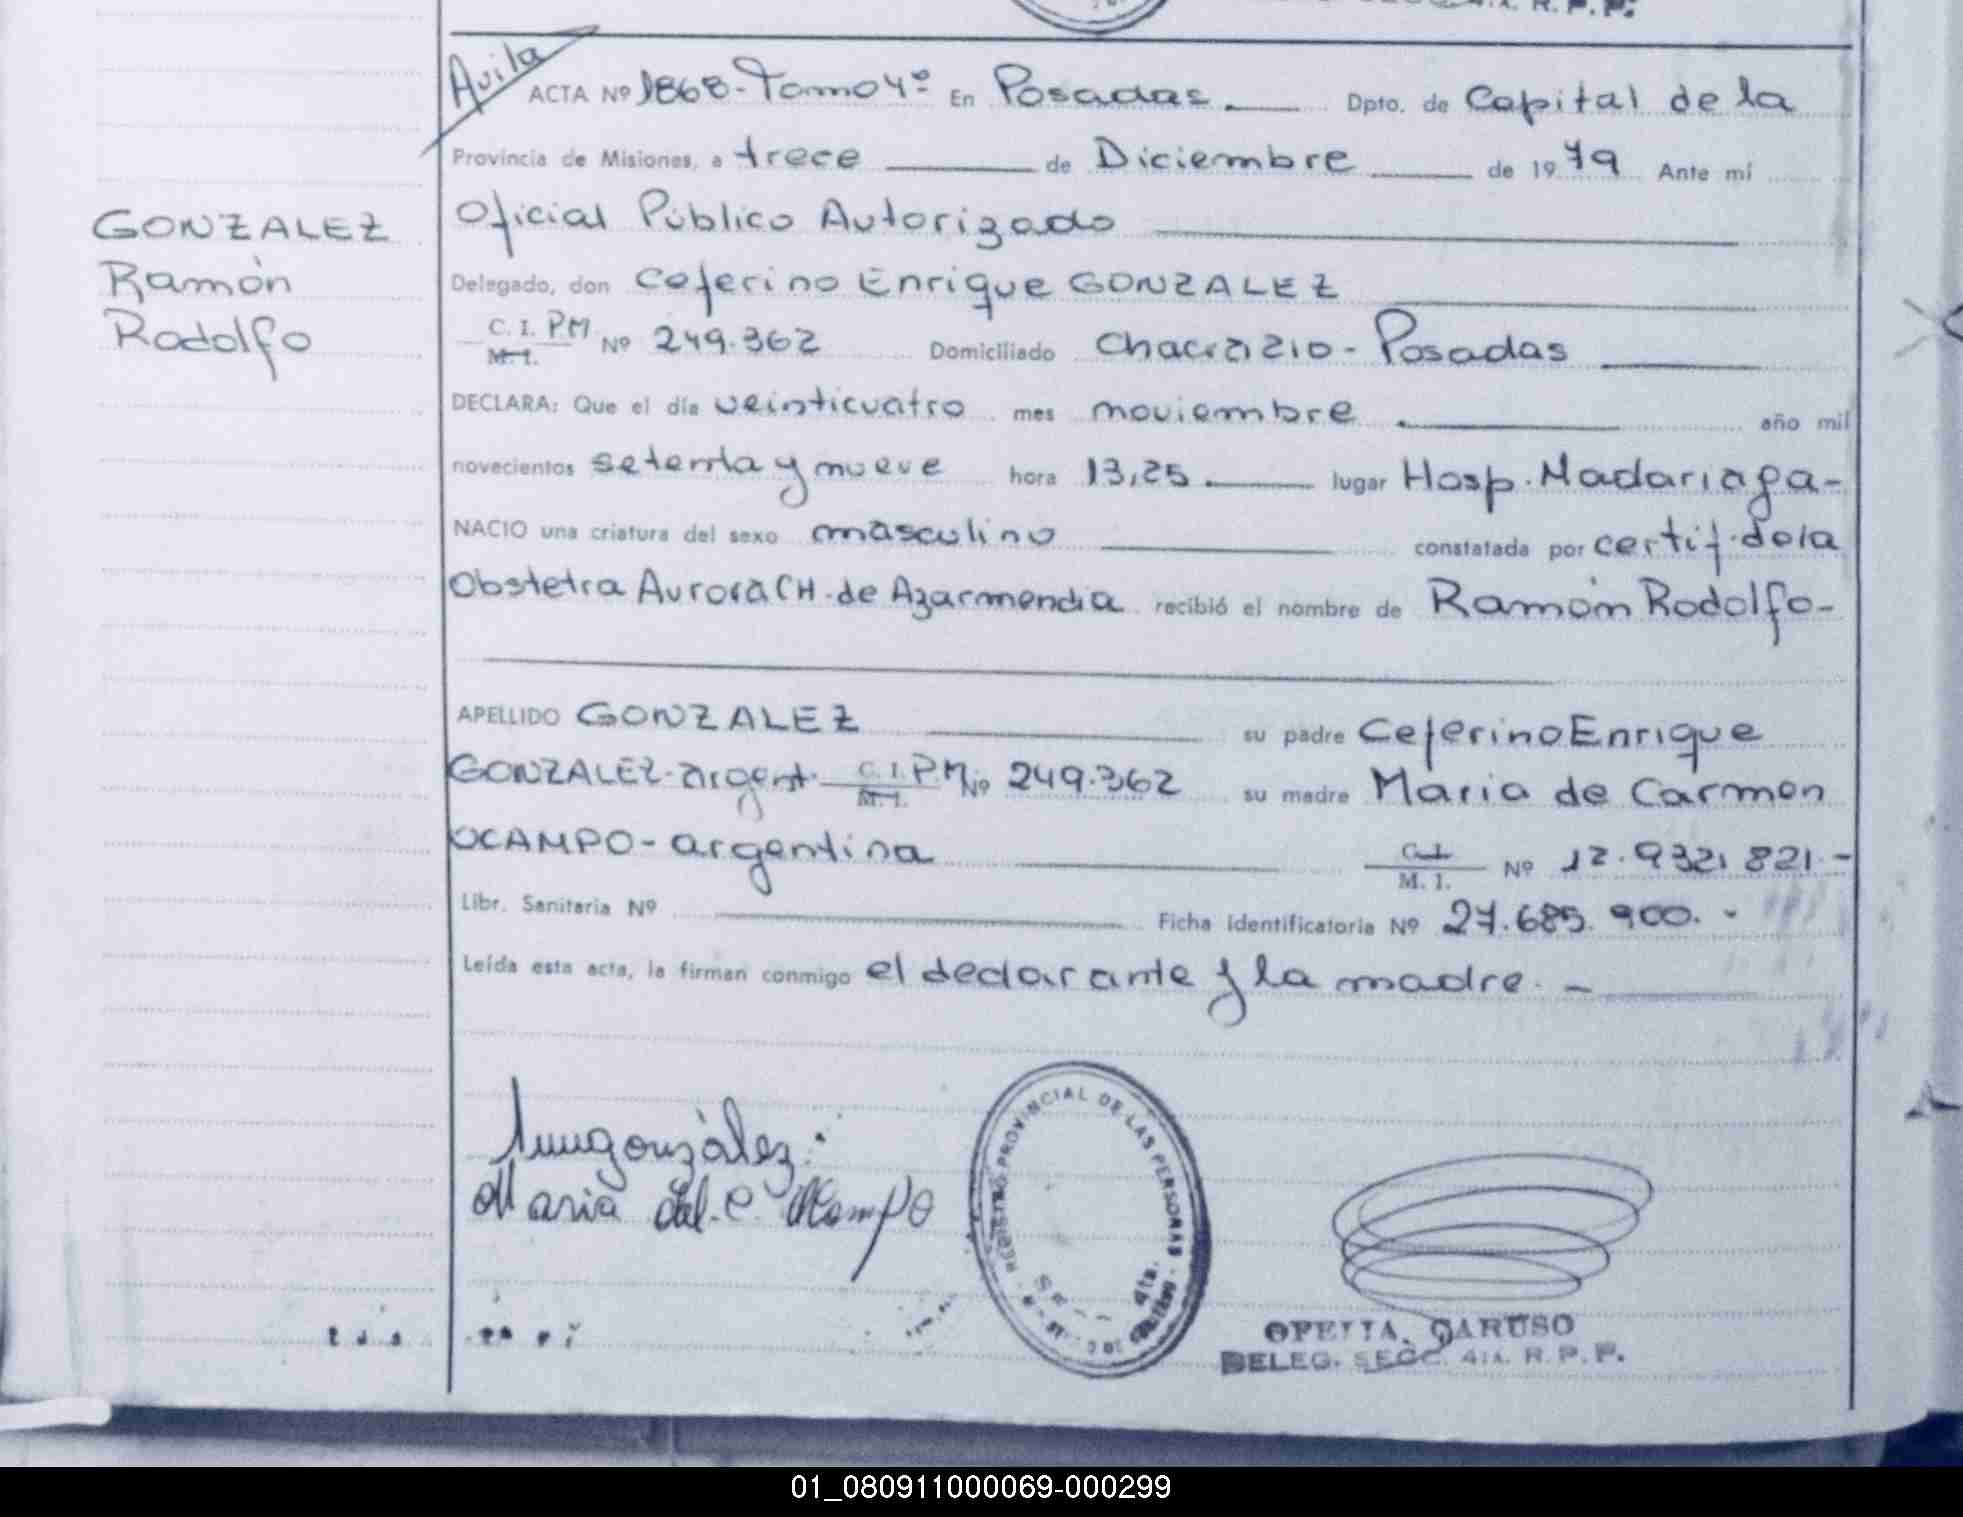 R. P. P.
Avila
ACTA Nº 1868- Tomo 4º En Posadas Dpto. de Capital de la
Provincia de Misiones, a trece de Diciembre de 1979 Ante mí
Oficial Público Autorizado
GONZALEZ
Ramón
Rodolfo
Delegado, don Ceferino Enrique GONZALEZ
C. I. PM M. I. Nº 249.362 Domiciliado Posadas
DECLARA: Que el día veinticuatro mes noviembre año mil
novecientos setenta y nueve hora 13,25 lugar Hosp. Madariaga-
NACIO una criatura del sexo masculino constatada por certif. de la
Obstetra Aurora CH. de Azarmendia recibió el nombre de Ramón Rodolfo-
APELLIDO GONZALEZ su padre Ceferino Enrique
GONZALEZ- argent. C. I. P.M M. I. Nº 249.362 su madre Maria de Carmen
OCAMPO- argentina C. I. M. I. Nº 12.932.821.-
Libr. Sanitaria Nº Ficha identificatoria Nº 27.685.900.-
Leída esta acta, la firman conmigo el declarante y la madre.-
gonzález
Maria del. C. Ocampo
REGISTRO PROVINCIAL DE LAS PERSONAS
4ta.
OFELIA CARUSO
DELEG. SECC. 4ta. R. P. P.
01_080911000069-000299